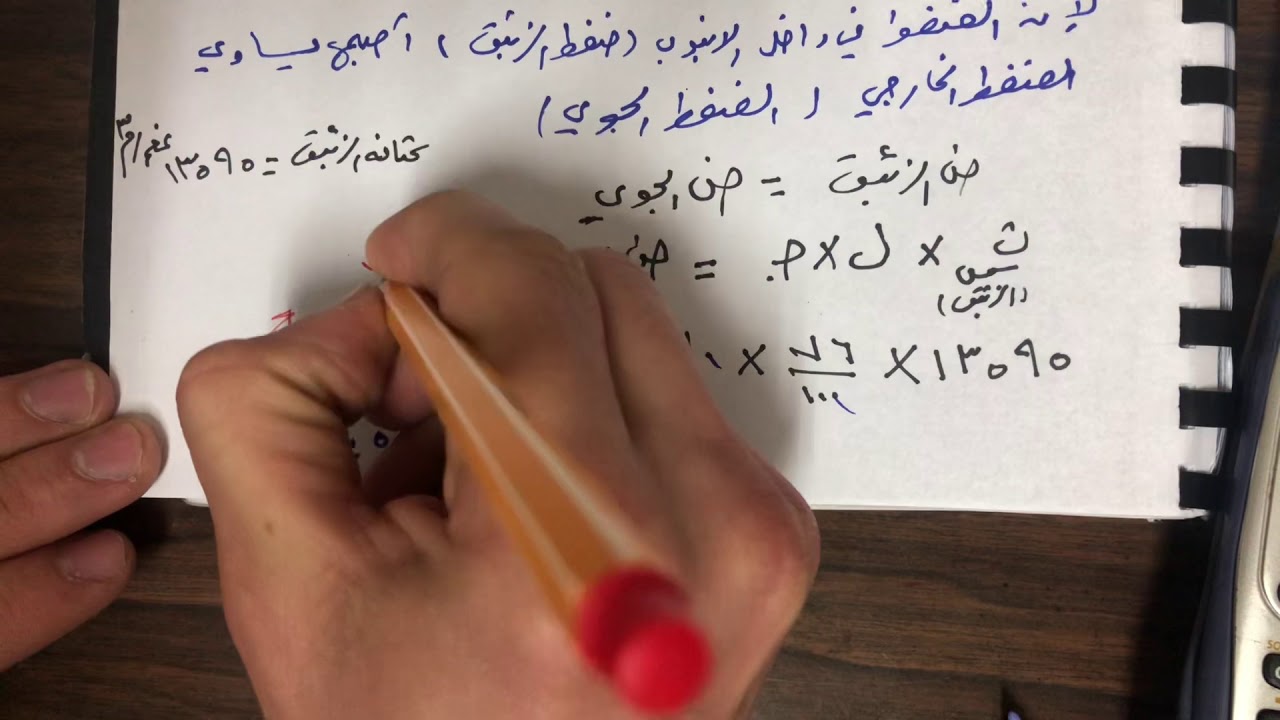 لإن الضغط في داخل الانبوب (ضغط الزئبق) أصبح يساوي
الضغط الخارجي (الضغط الجوي)
كثافة الزئبق = ١٣٥٩٠ كغم/م٣
ض الزئبق = ض الجوي
ث سائل × ل × جـ =
(الزئبق)
١٣٥٩٠ × ٧٦/١٠٠ ×